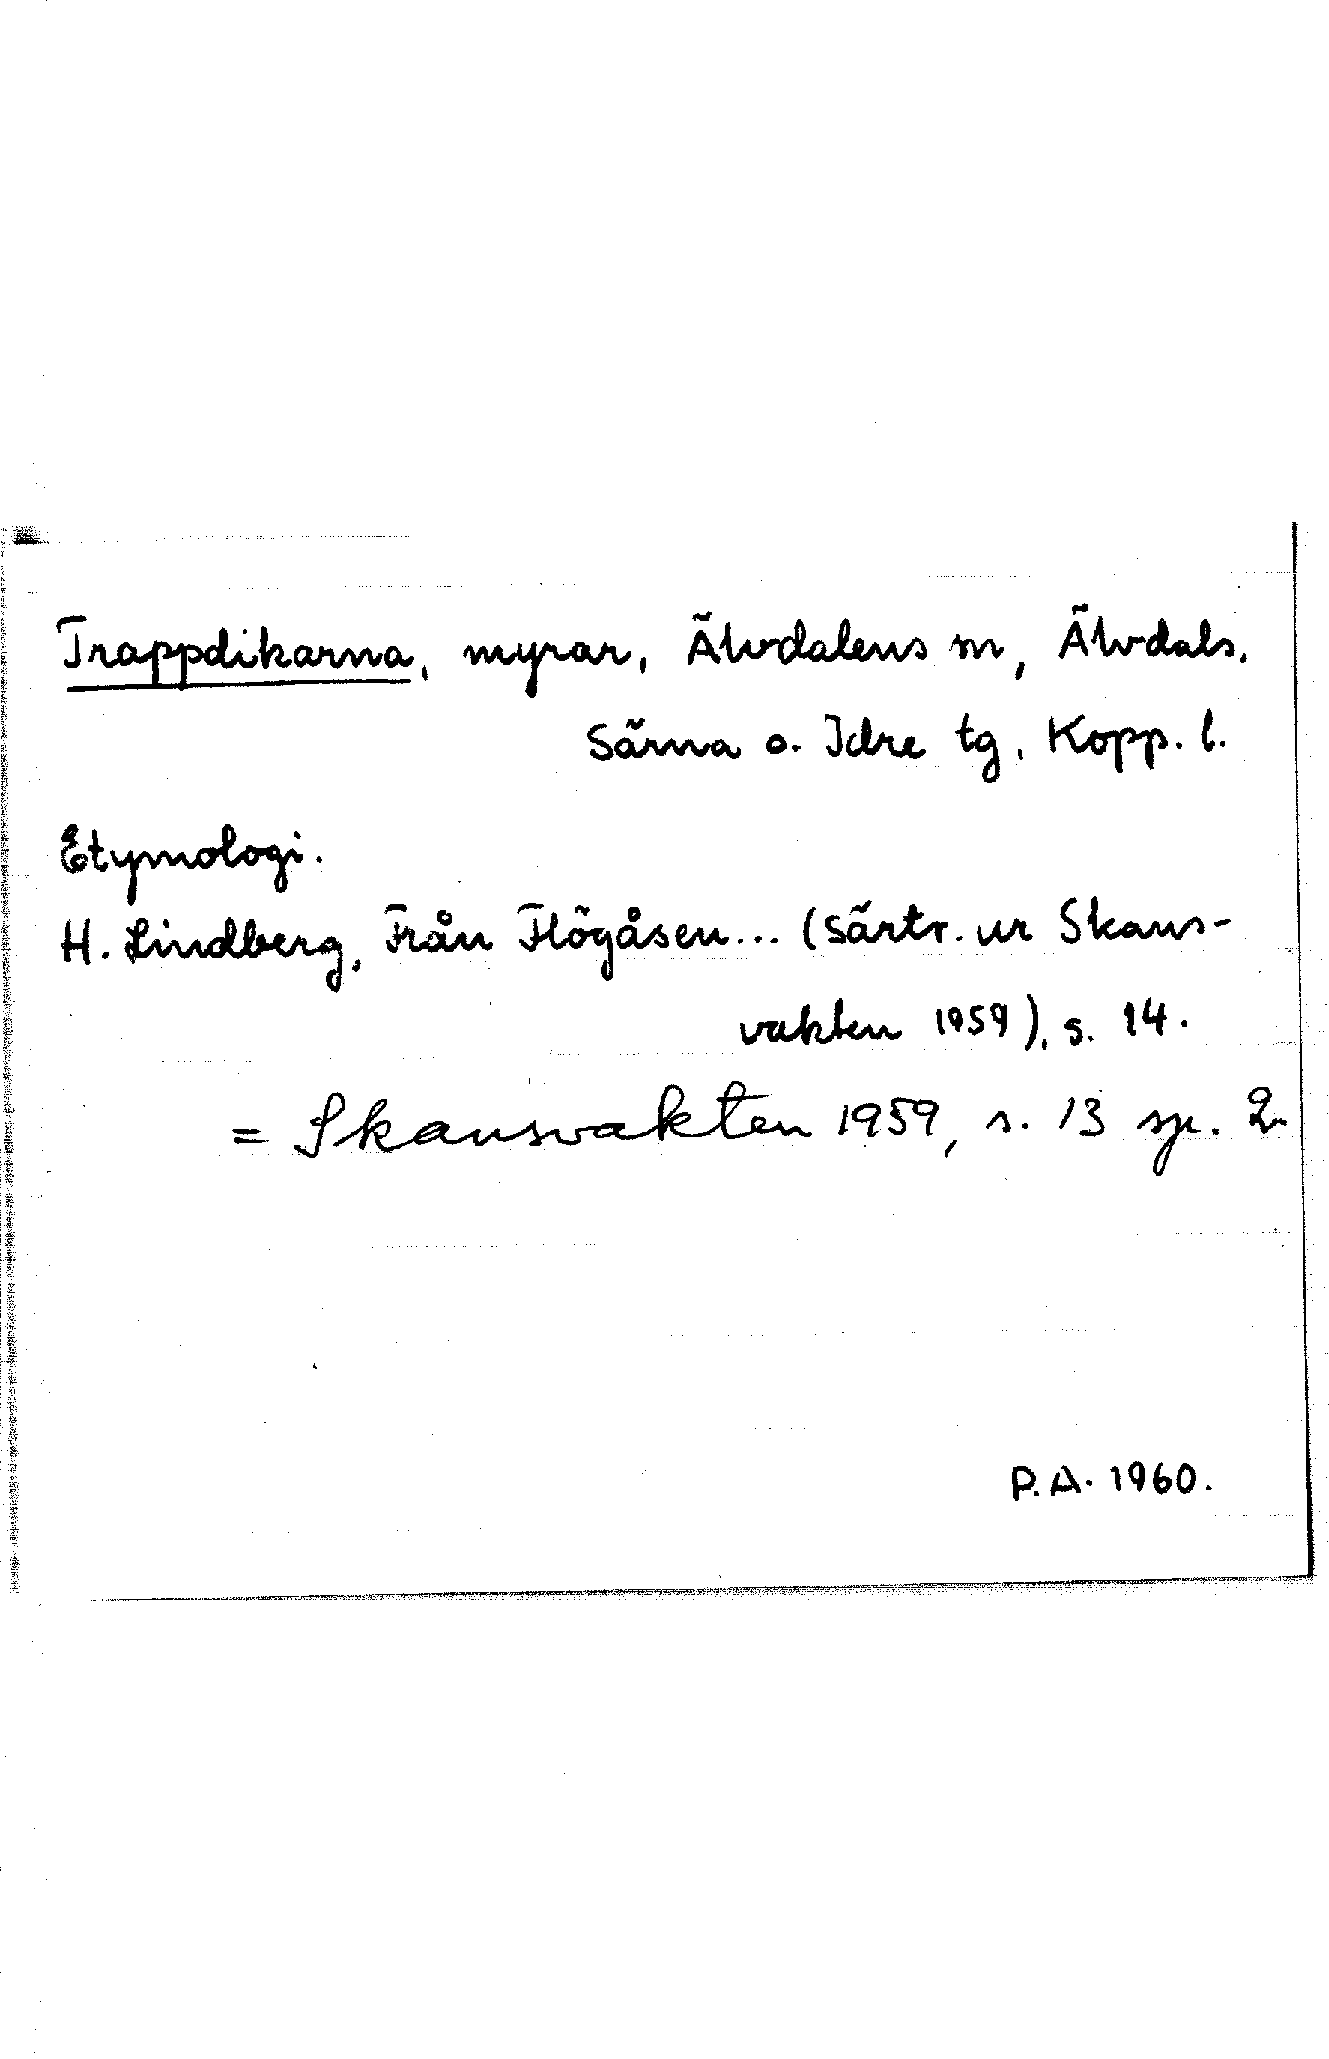 Trappdikarna, myrar, Älvdalens sn, Älvdals,
Särna o. Idre tg, Kopp. l.
Etymologi.
H. Lindberg, Från Flögåsen... (särtr. ur Skans-
vakten 1959), s. 14.
= Skansvakten 1959, s. 13 sp. 2
P.A. 1960.